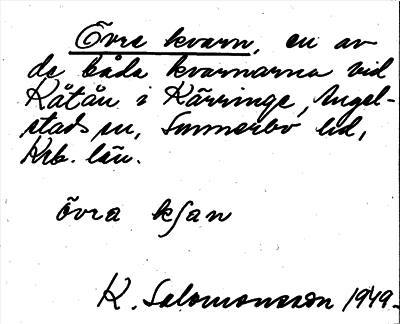 Övre kvarn, en av
de båda kvarnarna vid
Kåtån i Kärringe, Ingel-
stads sn, Sunnerbo hd,
Krb. län.
övra
K. Salomonsson 1949.